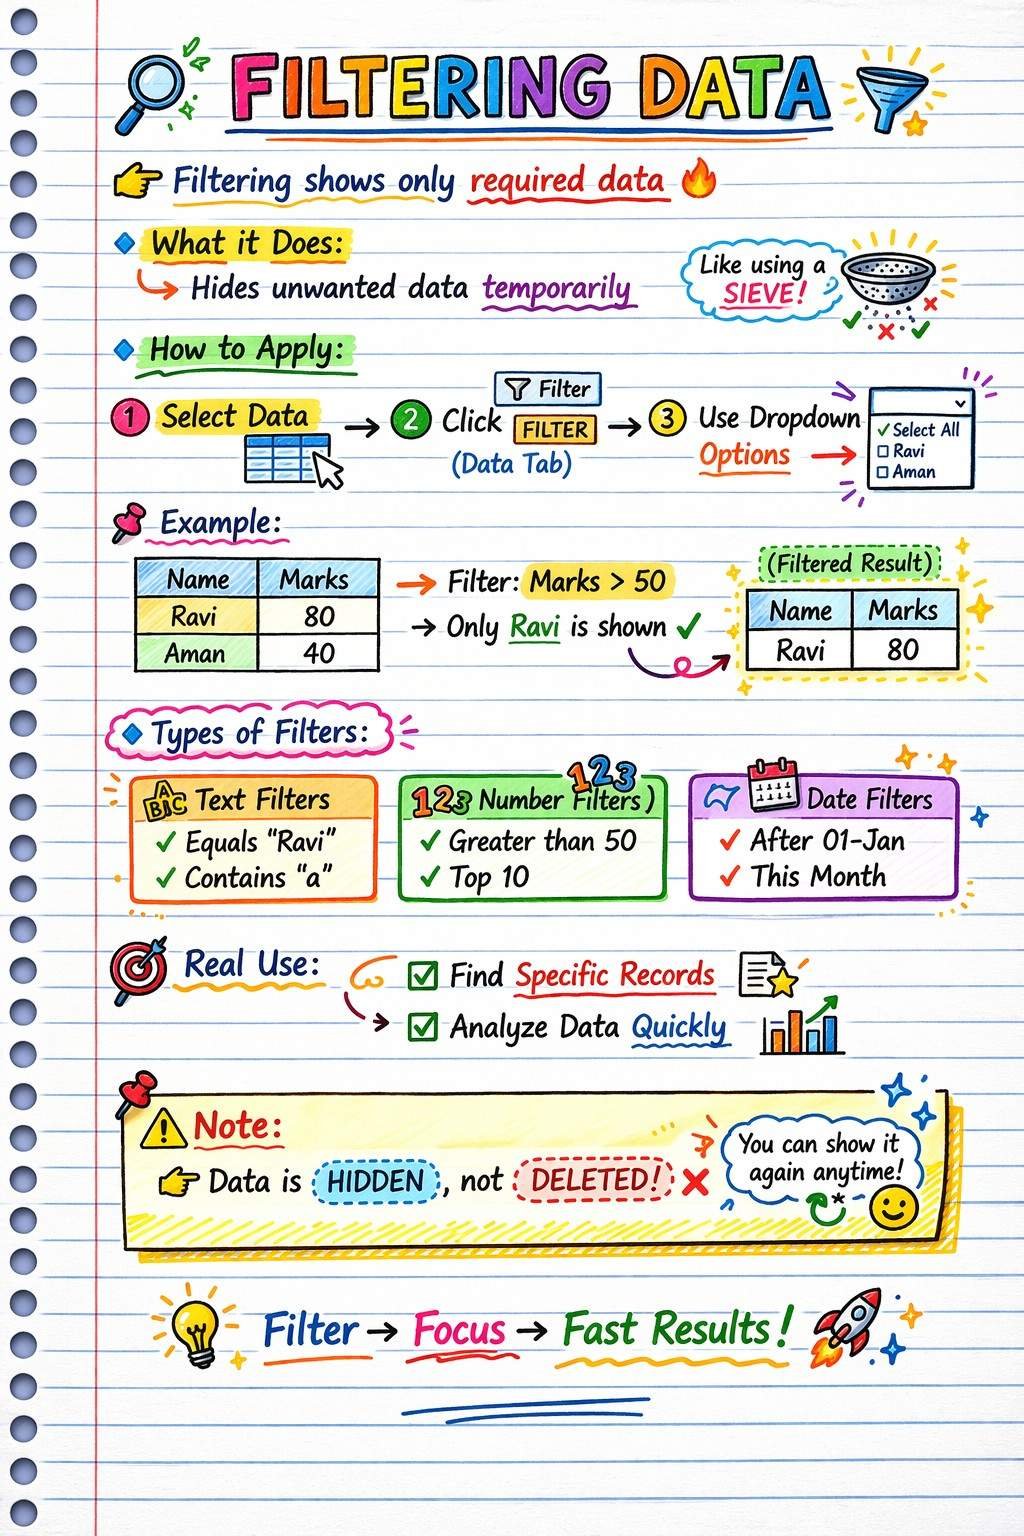 FILTERING DATA
Filtering shows only required data
What it Does:
Hides unwanted data temporarily
Like using a
SIEVE!
How to Apply:
1 Select Data
2 Click Filter FILTER
(Data Tab)
3 Use Dropdown
Options
Select All
Ravi
Aman
Example:
Name Marks
Ravi 80
Aman 40
Filter: Marks > 50
→ Only Ravi is shown ✓
(Filtered Result)
Name Marks
Ravi 80
Types of Filters:
ABC Text Filters
✓ Equals "Ravi"
✓ Contains "a"
123 Number Filters)
123
✓ Greater than 50
✓ Top 10
Date Filters
✓ After 01-Jan
✓ This Month
Real Use:
Find Specific Records
Analyze Data Quickly
Note:
Data is HIDDEN, not DELETED!
You can show it
again anytime!
Filter → Focus → Fast Results!